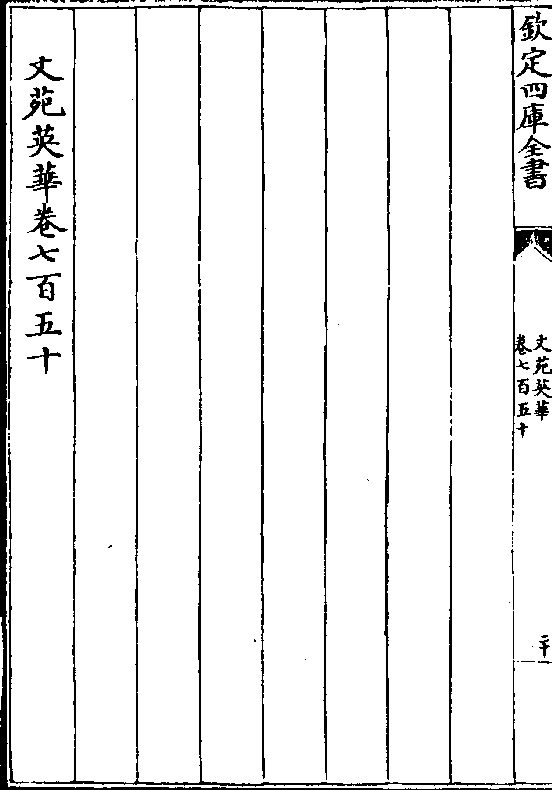 欽定四庫全書
文苑英華
卷七百五十
二十
文苑英華卷七百五十